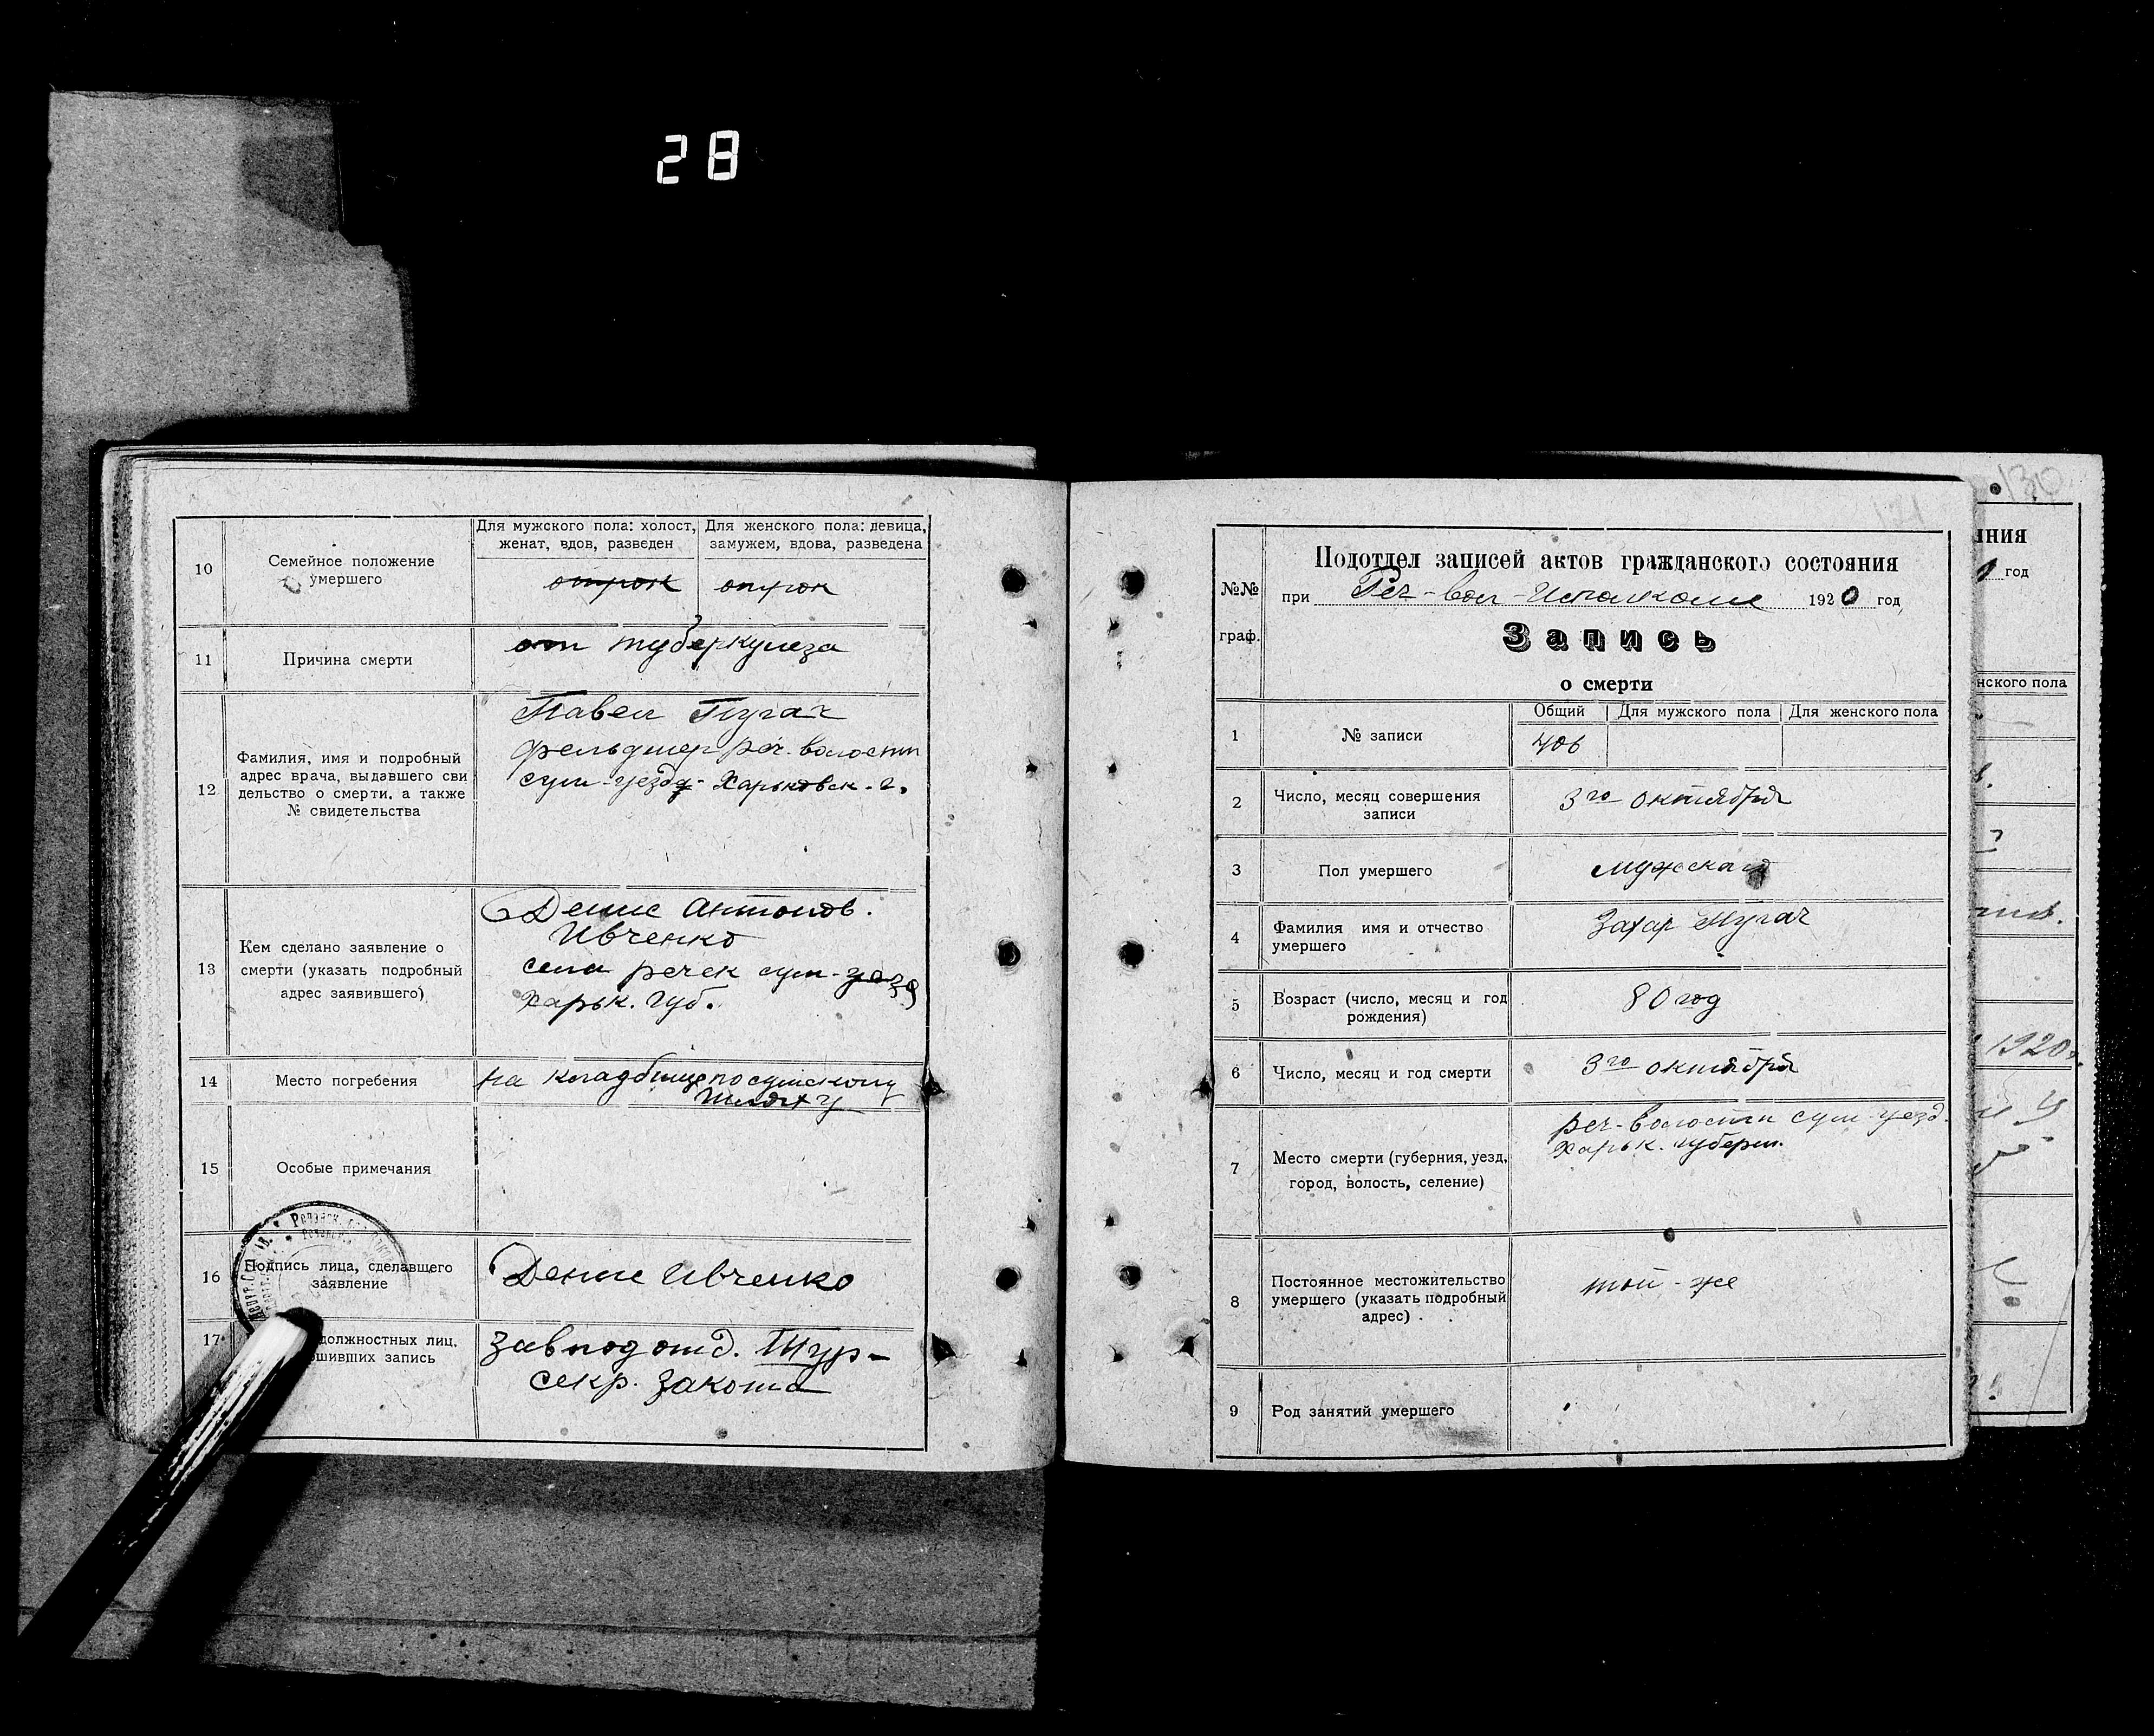 28
10
Семейное положение
умершего
Для мужского пола: холост,
женат, вдов, разведен
Для женского пола: девица,
замужем, вдова, разведена
отрок
отрок
11
Причина смерти
от туберкулеза
12
Фамилия, имя и подробный
адрес врача, выдавшего сви
дельство о смерти, а также
№ свидетельства
Павел Пугач
фельдшер реч. волости
сум-уезда Харьковск. г.
13
Кем сделано заявление о
смерти (указать подробный
адрес заявившего)
Денис Антонов.
Ивченко
села речек сум-уезд
Харьк. Губ.
14
Место погребения
на кладбище по сумскому
шляху
15
Особые примечания
16
Подпись лица, сделавщего
заявление
Денис Ивченко
17
должностных лиц,
шивших запись
завподотд.
секр.
131
№№
граф.
Подотдел записей актов гражданского состояния
при Реч-вол-Исполкоме 1920 год
Запись
о смерти
1
№ записи
Общий
Для мужского пола
Для женского пола
406
2
Число, месяц совершения
записи
3го октября
3
Пол умершего
мужская
4
Фамилия имя и отчество
умершего
Захар Пугач
5
Возраст (число, месяц и год
рождения)
80 год
6
Число, месяц и год смерти
3го октября
7
Место смерти (губерния, уезд,
город, волость, селение)
реч-волости сум-уезд.
Харьк. губерн.
8
Постоянное местожительство
умершего (указать подробный
адрес)
той-же
9
Род занятий умершего
130
ния
год
нского пола
1920